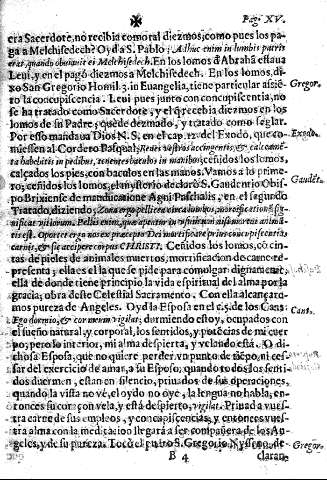 ✠ Pag. XV.
era Sacerdote, no recibia como tal diezmos; como pues los pa-
ga a Melchisedech? Oyd a S. Pablo; Adhuc enim in lumbis patris
erat, quando obuiauit ei Melchisedech. En los lomos d Abrahã estaua
Leui, y en el pagò diezmos a Melchisedech. En los lomos, di-
xo San Gregorio Homil. 3. in Euangelia, tiene particular assiẽ- Gregor.
to la concupiscencia. Leui pues junto con concupiscentia, no
se ha tratado como Sacerdote, y el q recebia diezmos en los
lomos de su Padre; que de dezmado, y tratado como seglar.
Por esso mandaua Dios N. S. en el cap. 12. del Exodo, que co- Exodo.
miessen al Cordero Pasqual; Renes vestros accingentis, & calceamẽ-
ta habebitis in pedibus, tenentes baculos in manibus; ceñidos los lomos,
calçados los pies, con baculos en las manos. Vamos a lo prime-
ro; ceñidos los lomos, el mysterio declarò S. Gaudentio Obis- Gaudẽt.
po Brixiense de manducatione Agni Paschalis, en el segundo
Tratado, diziendo;
nit est. Oportet ergo nos ex præcepto Dei mortificare prius concupiscentias
carnis, & sic accipere corpus CHRISTI. Ceñidos los lomos, cõ cin-
tas de pieles de animales muertos, mortificacion de carne re-
presenta; y ella es ella que se pide para comolgar dignamente,
ella de donde tiene principio la vida espiritual del alma por la
gracia, obra deste Celestial Sacramento. Con ella alcançare-
mos pureza de Angeles. Oyd la Esposa en el c. 5. de los Cant. Cant.
Ego dormio, & cor meum vigilat; durmiendo estoy, ocupados con
el sueño natural, y corporal, los sentidos, y potẽcias de mi cuer-
po; pero lo interior, mi alma despierta, y velando està. O di-
chosa Esposa, que no quiere perder vn punto de tiẽpo, ni ces-
sar del exercicio de amar, a su Esposo; quando todos los senti-
dos duermen, estan en silencio, priuados de sus operaciones,
quando la vista no vé, el oydo no oye, la lengua no habla, en-
tonces su coraçon vela, y està despierto, vigilat. Priuad a vues-
tra carne de sus empleos, y concupiscencias, y entonces vues-
tra alma con la meditacion llegarà a ser compañera de los An-
geles, y de su pureza. Tocò el punto S. Gregorio Nysseno, de- Gregor.
B 4 claran-